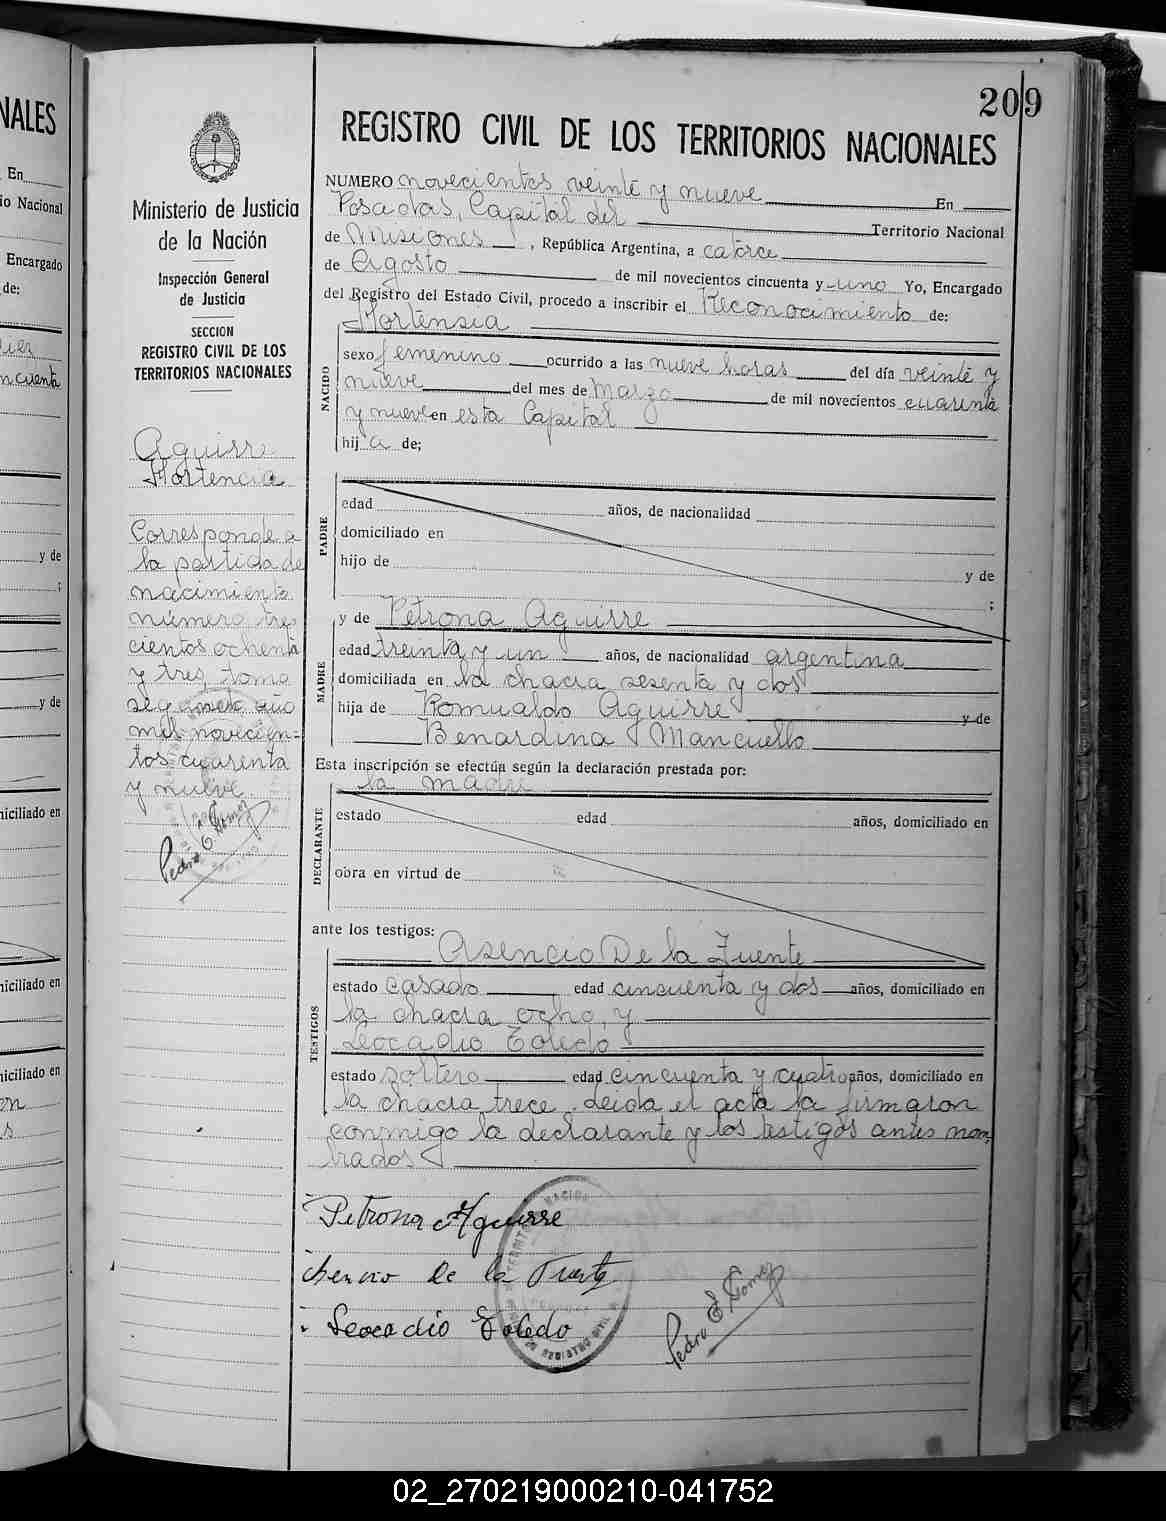 209
REGISTRO CIVIL DE LOS TERRITORIOS NACIONALES
NUMERO novecientos veinte y nueve En
Posadas, Capital del Territorio Nacional
de Misiones, República Argentina, a catorce
de Agosto de mil novecientos cincuenta y uno Yo, Encargado
del Registro del Estado Civil, procedo a inscribir el Reconocimiento de:
Hortensia
NACIDO
sexo femenino ocurrido a las nueve horas del día veinte y
nueve del mes de Marzo de mil novecientos cuarenta
y nueve en esta Capital
hija de;
PADRE
edad años, de nacionalidad
domiciliado en
hijo de y de
;
y de Petrona Aguirre
MADRE
edad treinta y un años, de nacionalidad argentina
domiciliada en la chacra sesenta y dos
hija de Romualdo Aguirre y de
Benardina Mancuello
Esta inscripción se efectúa según la declaración prestada por:
la madre
DECLARANTE
estado edad años, domiciliado en
obra en virtud de
ante los testigos:
Asencio De la Fuente
TESTIGOS
estado casado edad cincuenta y dos años, domiciliado en
la chacra ocho, y
Leocadio Toledo
estado soltero edad cincuenta y cuatro años, domiciliado en
la chacra trece. Leida el acta la firmaron
conmigo la declarante y los testigos antes nom-
brados
Petrona Aguirre
Asencio de la Fuente
Leocadio Toledo
Pedro E. Gomez
Ministerio de Justicia
de la Nación
Inspección General
de Justicia
SECCION
REGISTRO CIVIL DE LOS
TERRITORIOS NACIONALES
Aguirre
Hortencia
Corresponde a
la partida de
nacimiento
número tres
cientos ochenta
y tres, tomo
segundo año
mil novecien=
tos cuarenta
y nueve
Pedro E. Gomez
NALES
En
io Nacional
Encargado
de:
cuenta
y de
;
y de
niciliado en
niciliado en
niciliado en
02_270219000210-041752